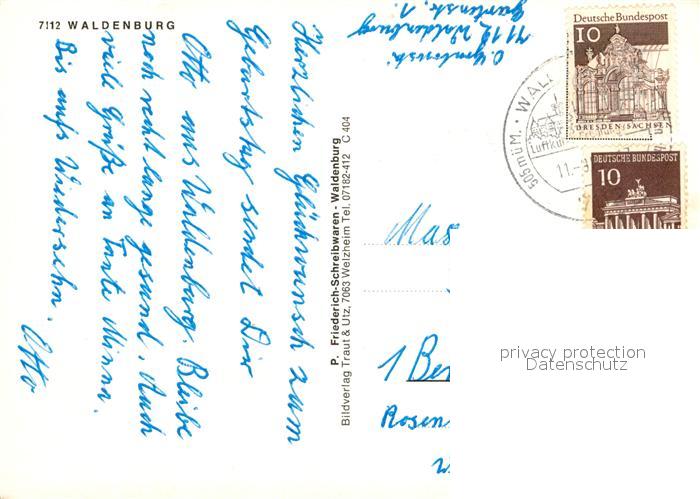 7112 WALDENBURG
Herzlichen Glückwunsch zum
Geburtstag sendet Dir
Otto aus Waldenburg. Bleibe
noch recht lange gesund. Auch
viele Grüße an Tante Minna.
Bis aufs Wiedersehn.
Otto
P. Friederich-Schreibwaren - Waldenburg
Bildverlag Traut & Utz, 7063 Welzheim Tel. 07182-412 C 404
O.
7112 Waldenburg
Gartenstr. 1.
Deutsche Bundespost
10
DRESDEN/SACHSEN
505mÜM. · WAL
Luftku
11.-
DEUTSCHE BUNDESPOST
10
1 Ber
Rosen
privacy protection
Datenschutz